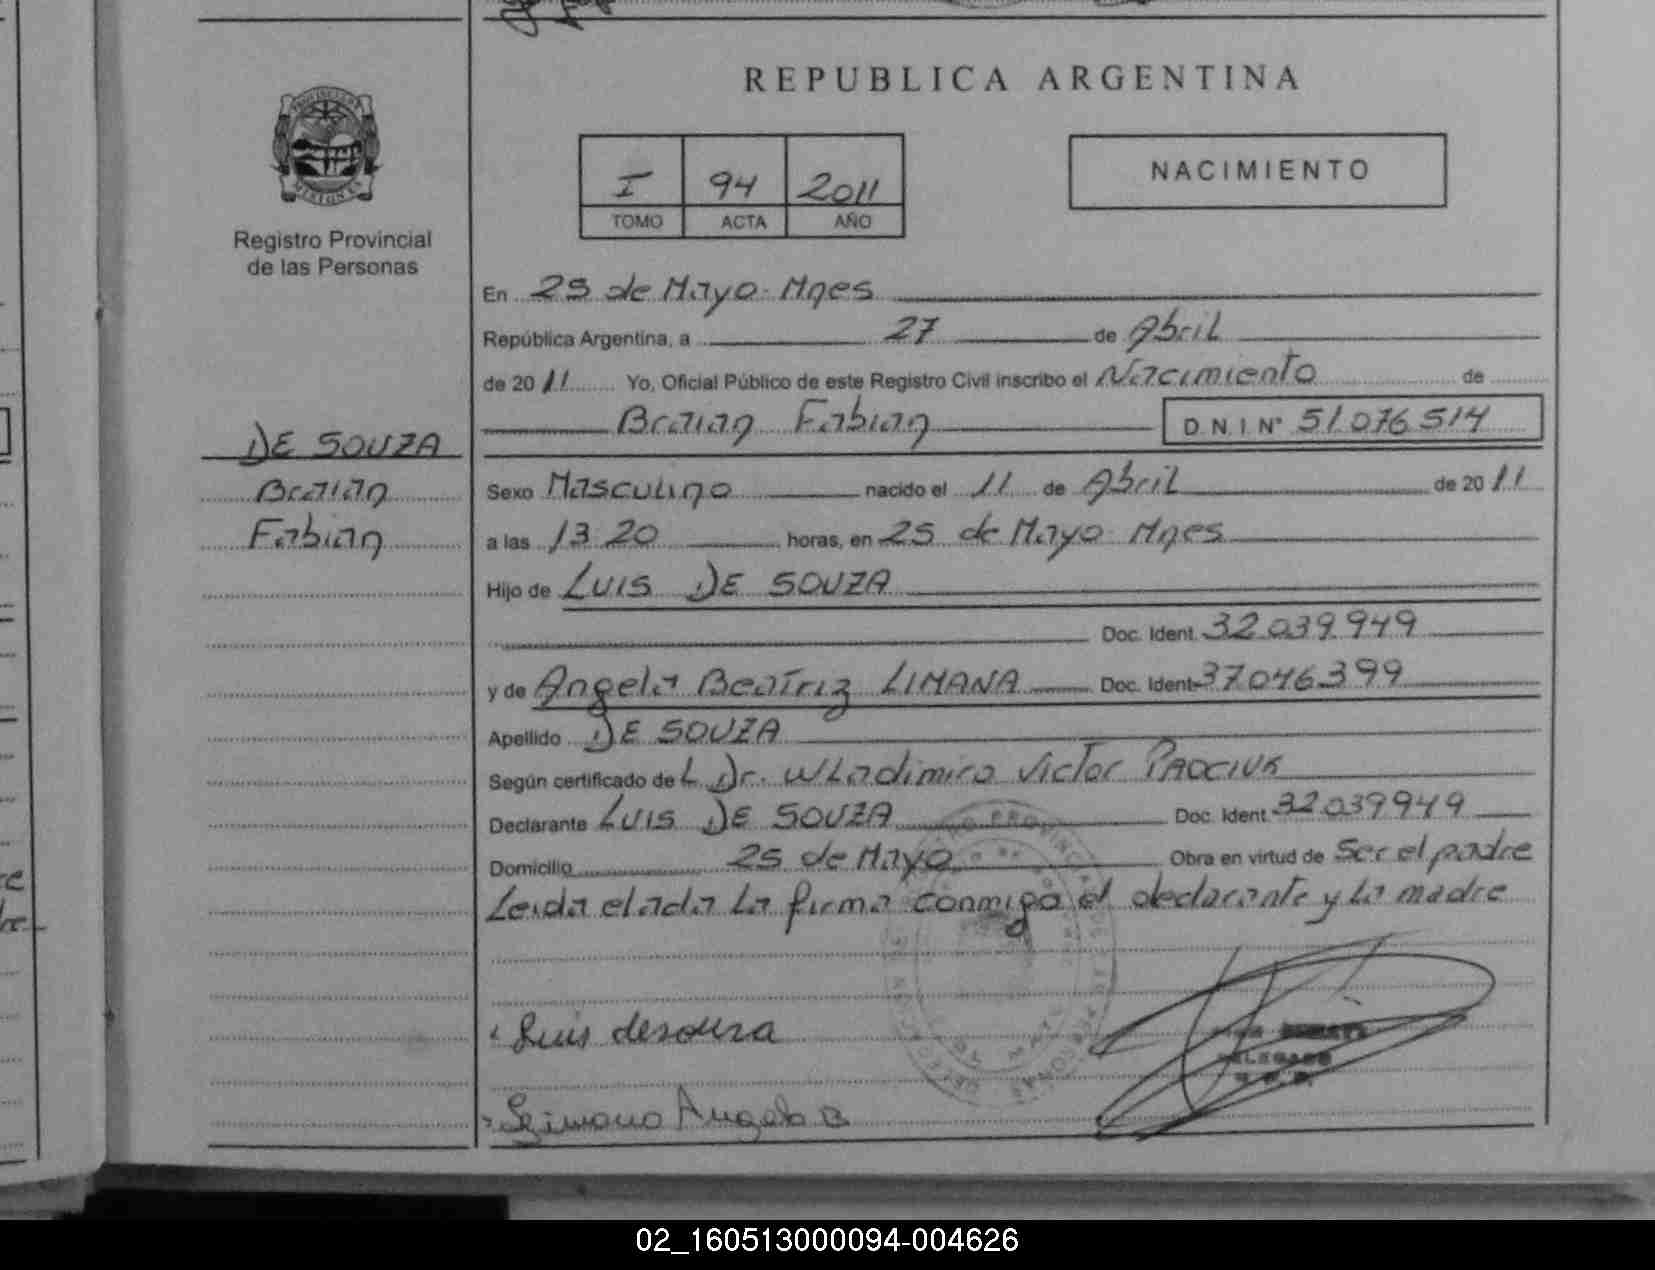 REPUBLICA ARGENTINA
PROVINCIA DE MISIONES
Registro Provincial
de las Personas
I 94 2011
TOMO ACTA AÑO
NACIMIENTO
En 25 de Mayo. Mnes
República Argentina, a 27 de Abril
de 20 11 Yo, Oficial Público de este Registro Civil inscribo el Nacimiento de
Braian Fabian D.N.I. Nº 51 076 514
DE SOUZA
Braian
Fabian
Sexo Masculino nacido el 11 de Abril de 20 11
a las 13 20 horas, en 25 de Mayo. Mnes
Hijo de LUIS DE SOUZA
Doc. Ident. 32 039 949
y de Angela Beatriz LIMANA Doc. Ident. 37 046 399
Apellido DE SOUZA
Según certificado de L Dr. Wladimiro Victor
Declarante LUIS DE SOUZA Doc. Ident. 32 039 949
Domicilio 25 de Mayo Obra en virtud de Ser el padre
Leida el acta la firma conmigo el declarante y la madre
Luis desouza
Limana Angela B
DELEGADO
02_160513000094-004626